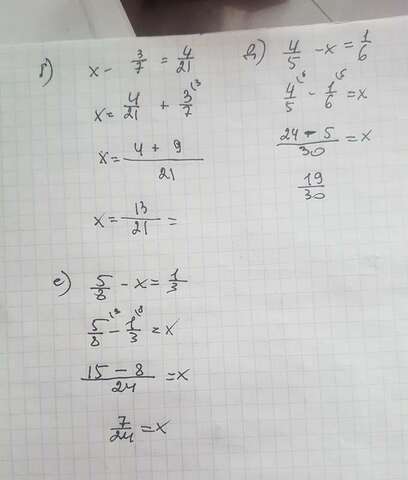 б) x - 3/7 = 4/21
x = 4/21 + 3/7 \3
x = 4 + 9 / 21
x = 13/21 =
д) 4/5 - x = 1/6
4/5 \6 - 1/6 \5 = x
24 - 5 / 30 = x
19/30
е) 5/8 - x = 1/3
5/8 \3 - 1/3 \8 = x
15 - 8 / 24 = x
7/24 = x